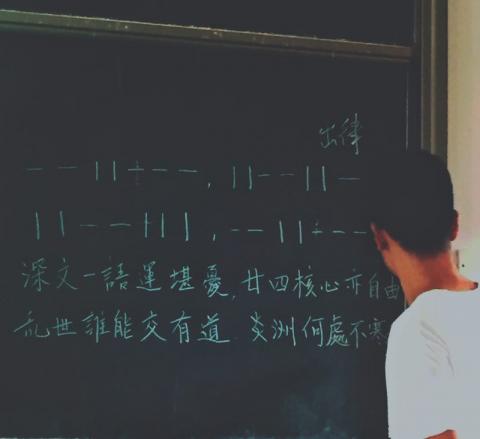 出律
— — | | + — — , | | — — | | —
| | — — + | | , — — | | + — —
深文一語運堪憂,廿四核心亦自由
乱世誰能交有道 炎洲何處不寒